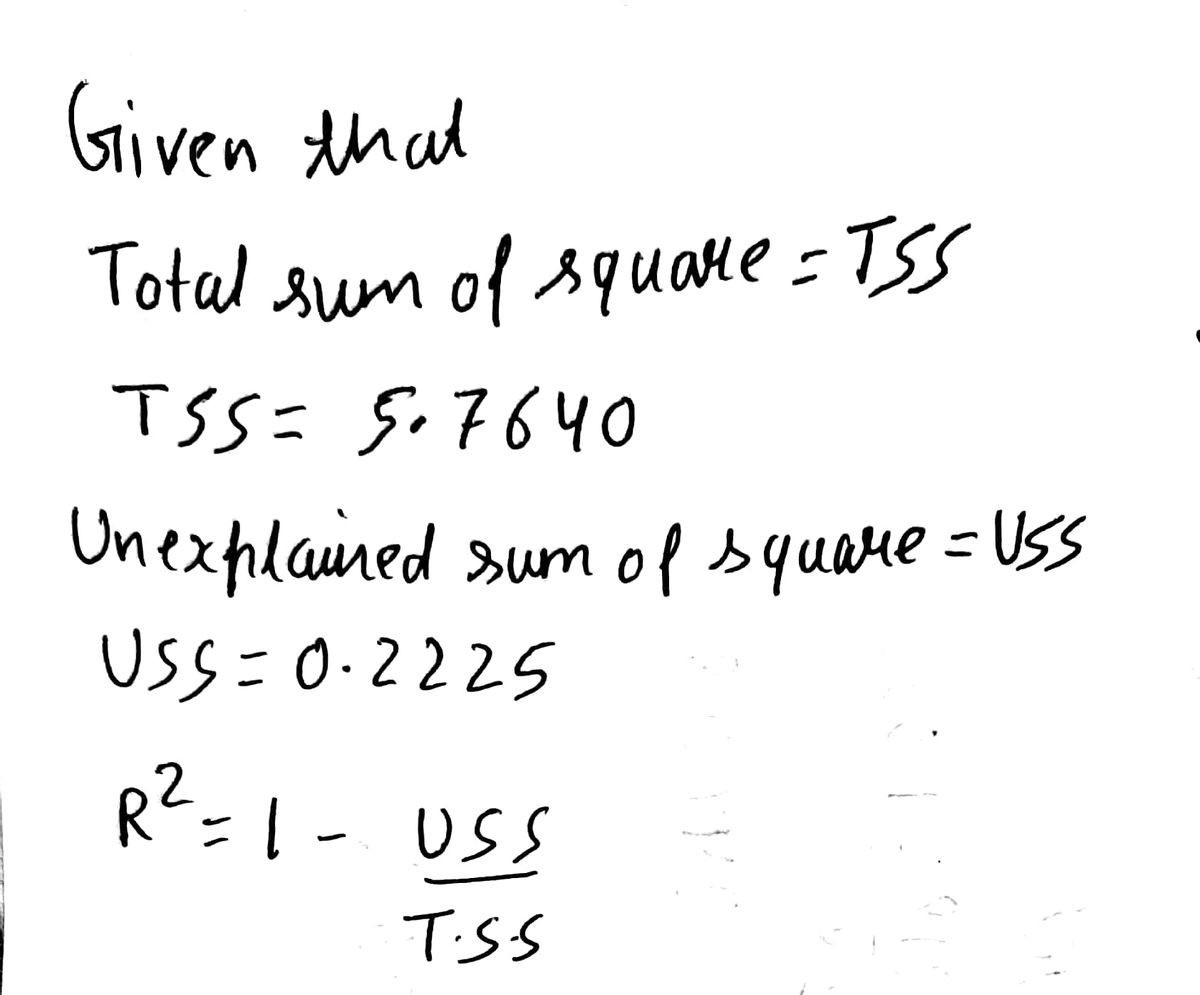 Given that
Total sum of square = TSS
TSS = 5.7640
Unexplained sum of square = USS
USS = 0.2225
R² = 1 - USS
T.S.S